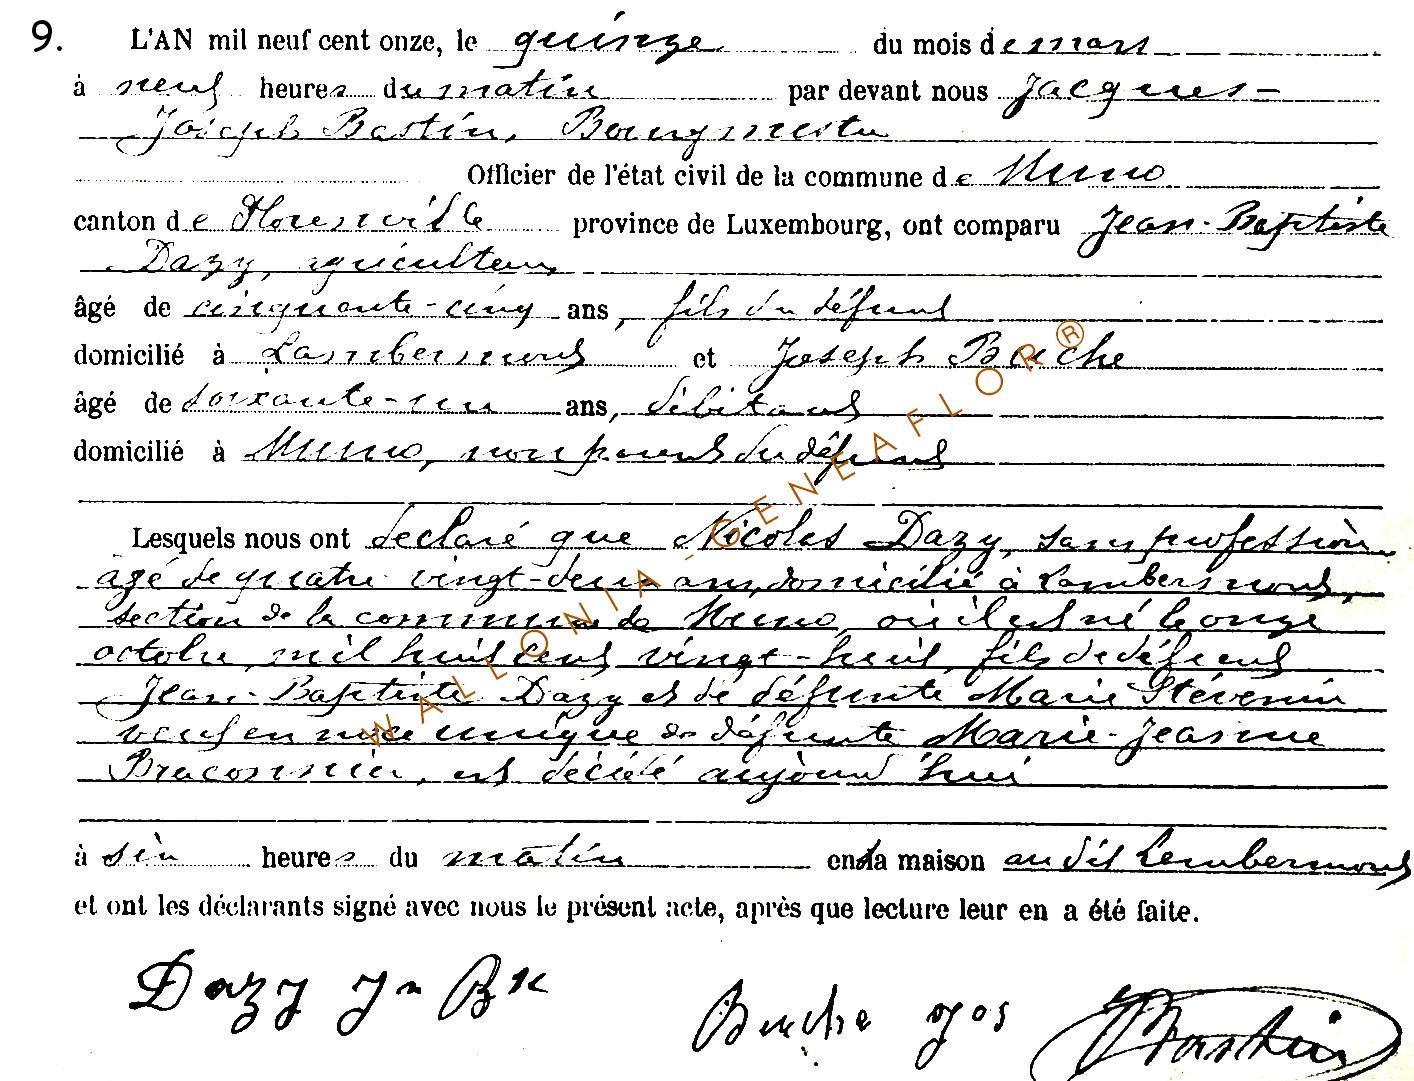 9. L'AN mil neuf cent onze, le quinze du mois de mars
à neuf heures du matin par devant nous Jacques-
Joseph Bastin, Bourgmestre
Officier de l'état civil de la commune de Muno
canton de Florenville province de Luxembourg, ont comparu Jean-Baptiste
Dazy, agriculteur
âgé de cinquante-cinq ans, fils du défunt
domicilié à Lambermont et Joseph Buche
âgé de soixante-un ans, débitant
domicilié à Muno, non parent du défunt
Lesquels nous ont déclaré que Nicolas Dazy, sans profession
agé de quatre vingt-deux ans, domicilié à Lambermont,
section de la commune de Muno, où il est né le onze
octobre mil huit cent vingt-huit, fils de défunt
Jean-Baptiste Dazy et de défunte Marie Stévenin
veuf en noce unique de défunte Marie-Jeanne
Braconnier, est décédé aujourd'hui
à six heures du matin en sa maison au dit Lambermont
et ont les déclarants signé avec nous le présent acte, après que lecture leur en a été faite.
Dazy Jn Bte
Buche Jos
JBastin
WALLONIA-GENEAFLOR®